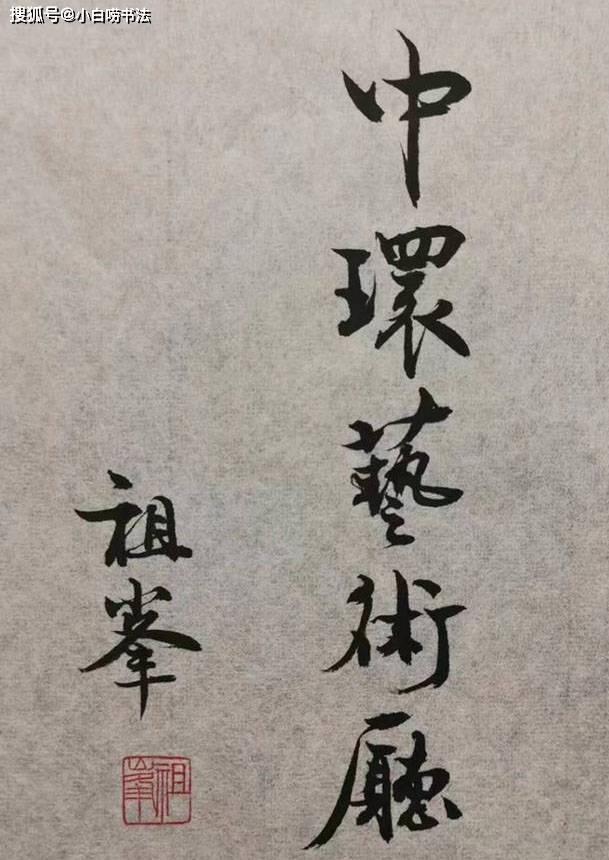 搜狐号@小白唠书法
中環藝術廳
祖峯
祖峯